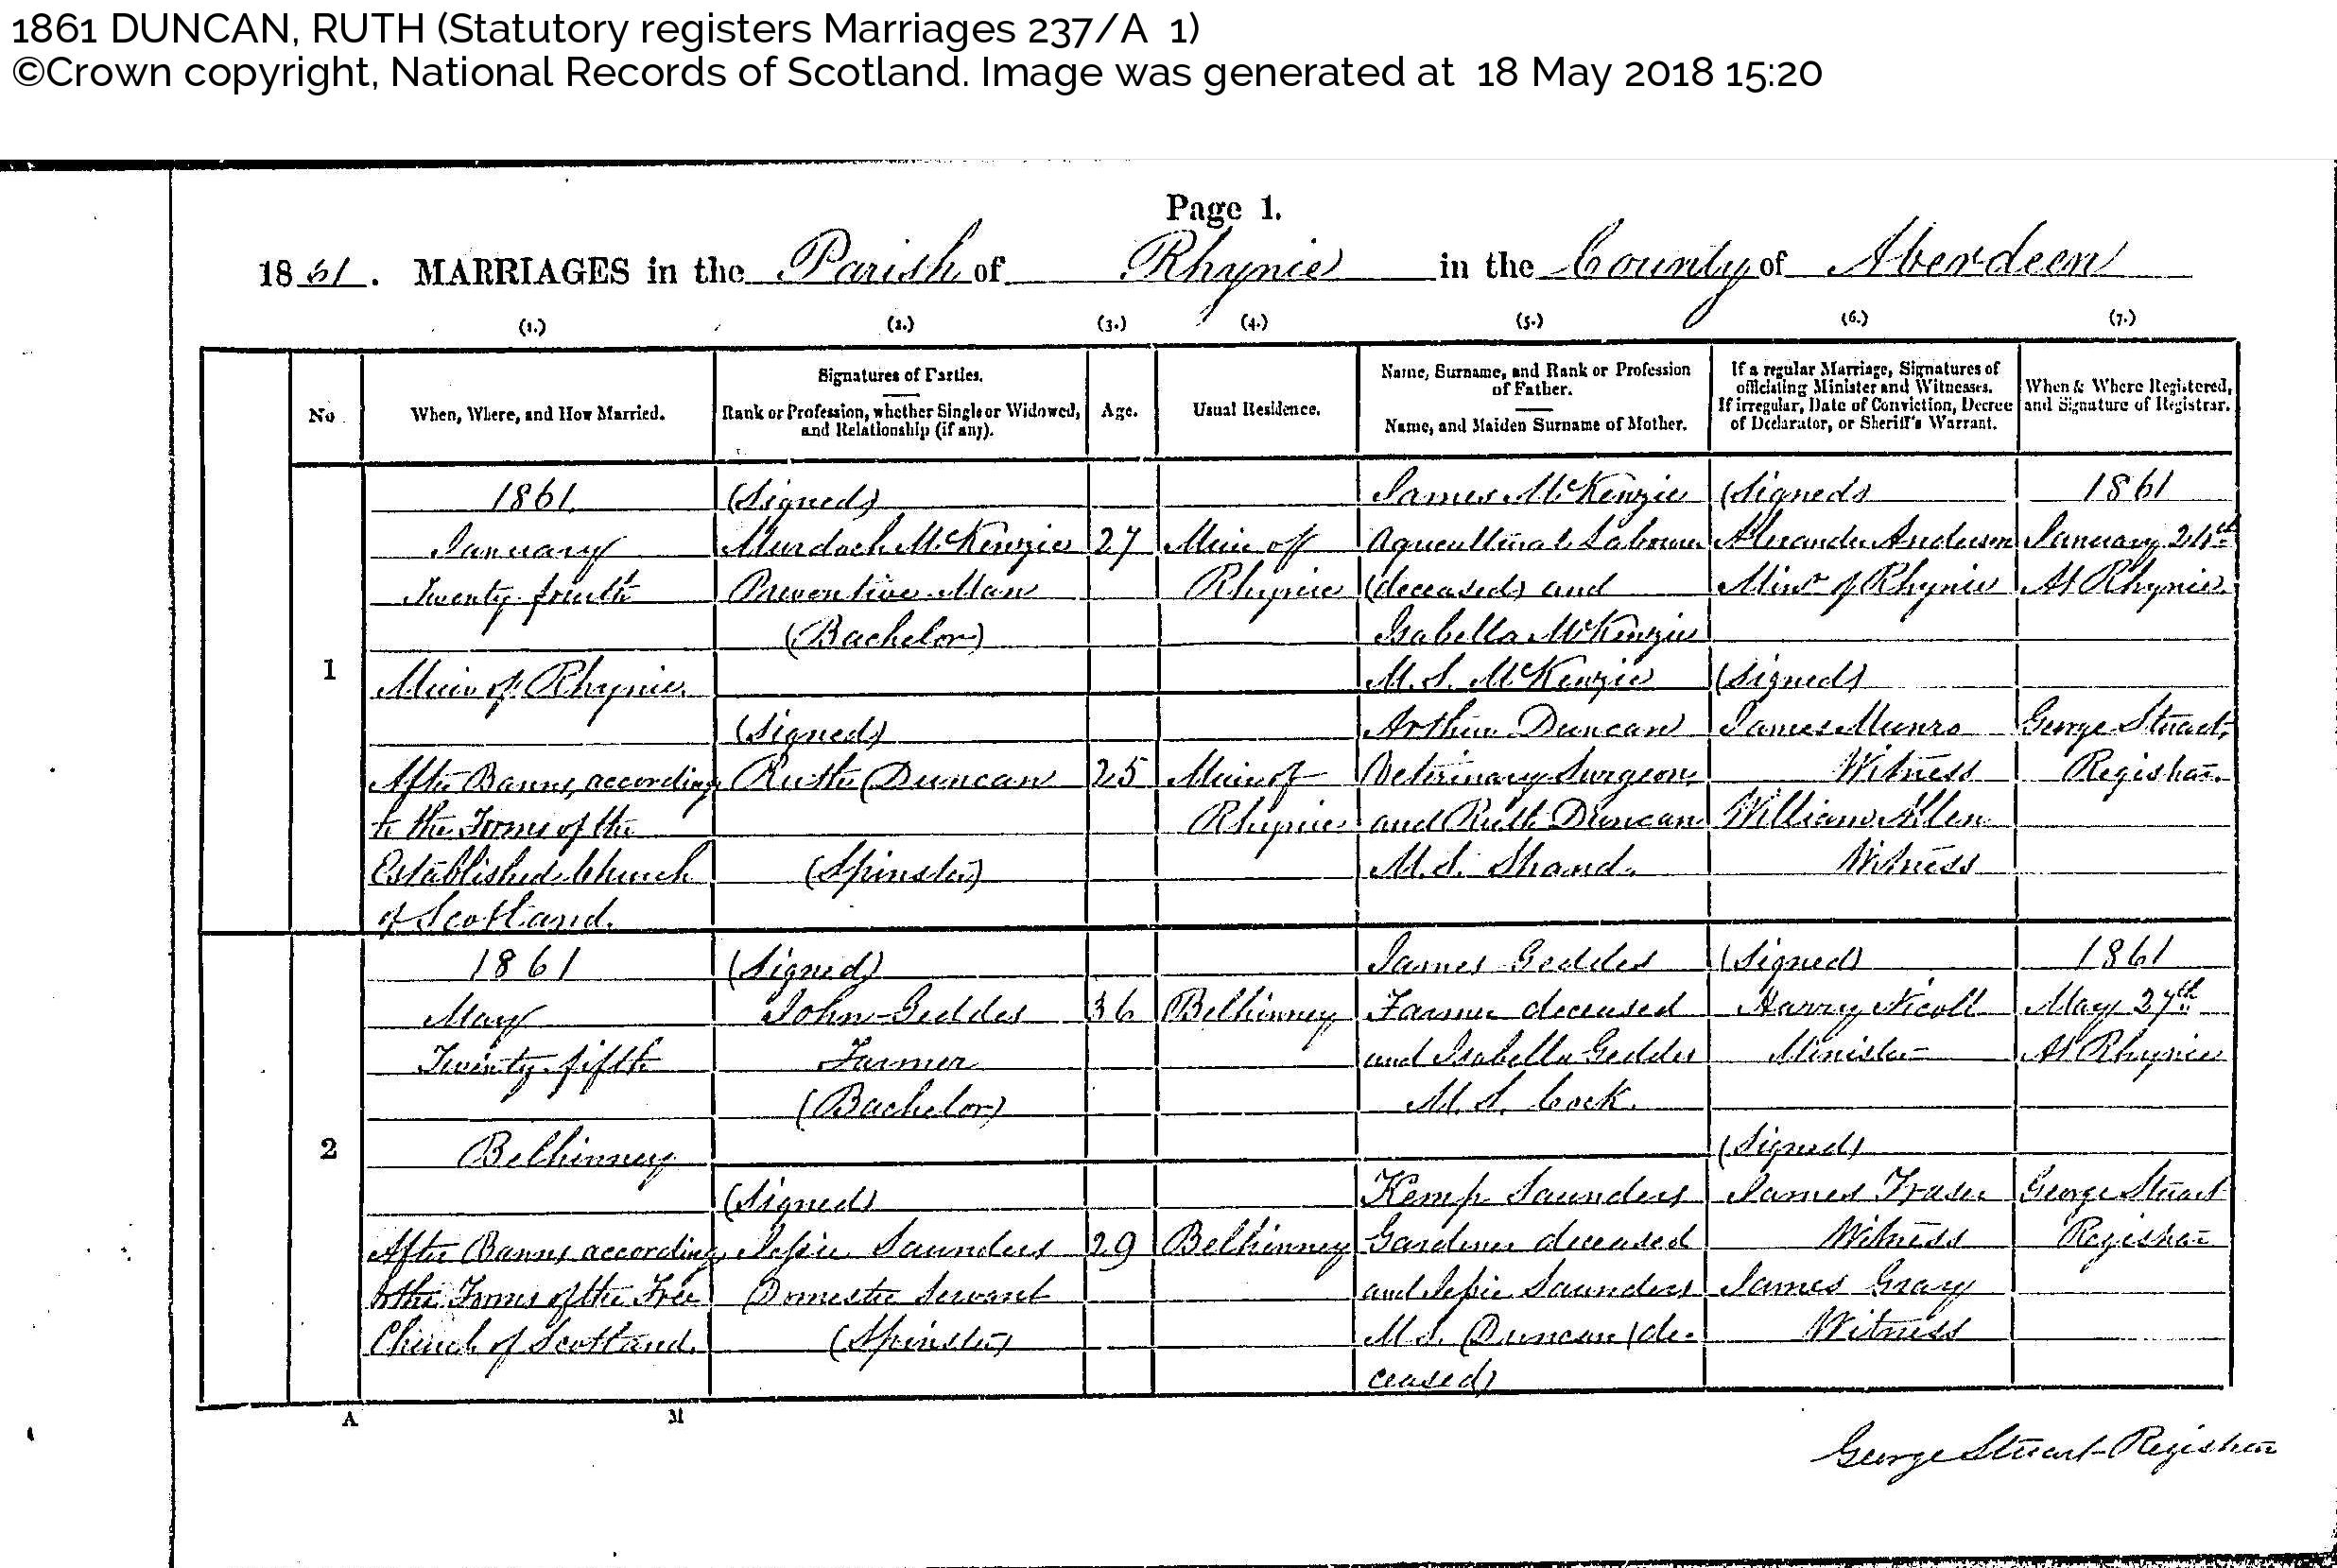 1861 DUNCAN, RUTH (Statutory registers Marriages 237/A 1)
©Crown copyright, National Records of Scotland. Image was generated at 18 May 2018 15:20
Page 1.
1861. MARRIAGES in the Parish of Rhynie in the County of Aberdeen
(1.) (2.) (3.) (4.) (5.) (6.) (7.)
No
When, Where, and How Married.
Signatures of Parties.
Rank or Profession, whether Single or Widowed,
and Relationship (if any).
Age.
Usual Residence.
Name, Surname, and Rank or Profession
of Father.
Name, and Maiden Surname of Mother.
If a regular Marriage, Signatures of
officiating Minister and Witnesses.
If irregular, Date of Conviction, Decree
of Declarator, or Sheriff's Warrant.
When & Where Registered,
and Signature of Registrar.
1
1861.
January
Twenty fourth
Muir of Rhynie.
After Banns, according
to the Forms of the
Established Church
of Scotland.
(Signed)
Murdoch McKenzie
Preventive Man
(Bachelor)
(Signed)
Ruth Duncan
(Spinster)
27
25
Muir of
Rhynie
Muir of
Rhynie
James McKenzie
Agricultural Labourer
(deceased) and
Isabella McKenzie
M.S. McKenzie
Arthur Duncan
Veterinary Surgeon,
and Ruth Duncan
M.S. Shand.
(Signed)
Alexander Anderson
Minr of Rhynie
(Signed)
James Munro
Witness
William Allen
Witness
1861
January 24th
At Rhynie.
George Stuart,
Registrar.
2
1861
May
Twenty fifth
Belhinney
After Banns, according
to the Forms of the Free
Church of Scotland.
(Signed)
John Geddes
Farmer
(Bachelor)
(Signed)
Jessie Saunders
Domestic Servant
(Spinster)
36
29
Belhinney
Belhinney
James Geddes
Farmer deceased
and Isabella Geddes
M.S. Cock.
Kemp Saunders
Gardener deceased
and Jessie Saunders
M.S. Duncan (de-
ceased)
(Signed)
Harry Nicoll
Minister
(Signed)
James Fraser
Witness
James Gray
Witness
1861
May 27th
At Rhynie
George Stuart
Registrar
A M
George Stuart Registrar